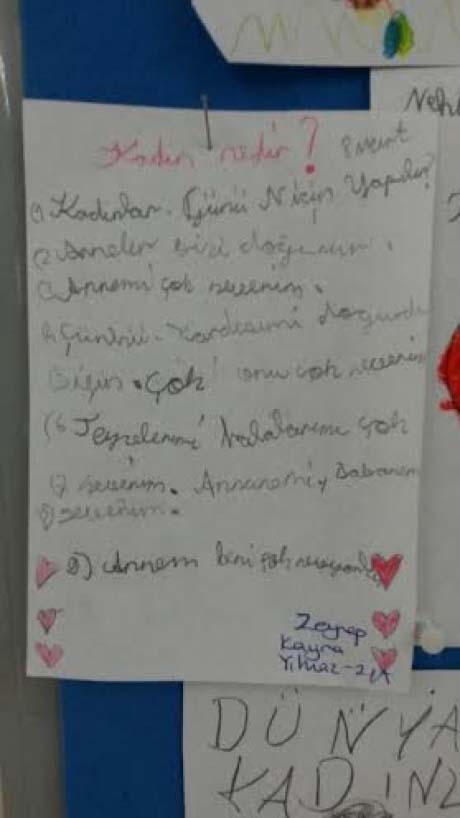 Neh
Kadın nedir? 8 mart
1) Kadınlar. Günü Niçin Yapılır?
(2 Anneler bizi doğurur.
3) Annemi çok severim.
4 Çünkü. Kardeşimi doğurdu
5) için. çok onu çok severim
(6 Teyzelerimi halalarımı çok
7) severim. Annanemi, Babanem
8) severim.
9) Annem beni çok
Zeynep
Kayra
Yılmaz-2/A
DÜNYA
KADINL